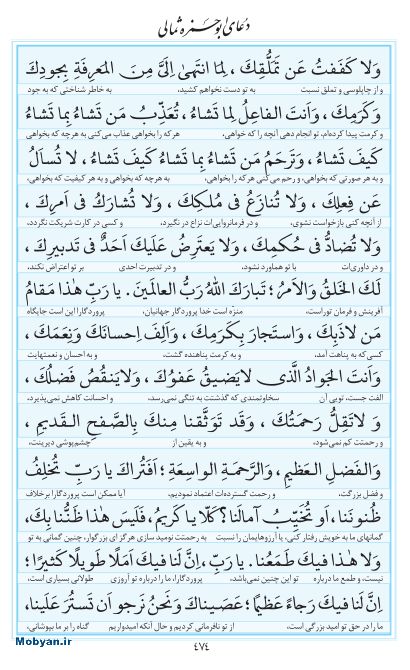 دعای ابوحمزه ثمالی
وَلا کَفَفتُ عَن تَمَلُّقِکَ ، لِمَا انتَهیٰ اِلَیَّ مِنَ المَعرِفَةِ بِجودِکَ
و از چاپلوسی و تملق نسبت به تو دست نخواهم کشید، به خاطر شناختی که به جود
وَکَرَمِکَ ، وَاَنتَ الفاعِلُ لِما تَشاءُ ، تُعَذِّبُ مَن تَشاءُ بِما تَشاءُ
و کرمت پیدا کرده‌ام، تو انجام دهی آنچه را که خواهی، هر که را بخواهی عذاب می‌کنی به هرچه که بخواهی
کَیفَ تَشاءُ ، وَتَرحَمُ مَن تَشاءُ بِما تَشاءُ کَیفَ تَشاءُ ، لا تُسأَلُ
و به هر صورتی که بخواهی، و رحم می‌کنی هر که را بخواهی، به هرچه که بخواهی و به هر کیفیت که بخواهی،
عَن فِعلِکَ ، وَلا تُنازَعُ فی مُلکِکَ ، وَلا تُشارَکُ فی اَمرِکَ ،
از آنچه کنی بازخواست نشوی، و در فرمانروایی‌ات نزاع در نگیرد، و کسی در کارت شریکت نگردد،
وَلا تُضادُّ فی حُکمِکَ ، وَلا یَعتَرِضُ عَلَیکَ اَحَدٌ فی تَدبیرِکَ ،
و در داوری‌ات با تو هماورد نشود، و در تدبیرت احدی بر تو اعتراض نکند،
لَکَ الخَلقُ وَالاَمرُ ؛ تَبارَکَ اللهُ رَبُّ العالَمینَ . یا رَبِّ هٰذا مَقامُ
آفرینش و فرمان توراست، منزه است خدا پروردگار جهانیان، پروردگارا این است جایگاه
مَن لاذَبِکَ ، وَاستَجارَ بِکَرَمِکَ ، وَاَلِفَ اِحسانَکَ وَنِعَمَکَ ،
کسی که به پناهت آمد، و به کرمت پناهنده گشت، و به احسان و نعمتهایت
وَاَنتَ الجَوادُ الَّذی لایَضیقُ عَفوُکَ ، وَلایَنقُصُ فَضلُکَ ،
الفت جست، تویی آن سخاوتمندی که گذشتت به تنگی نمی‌رسد، و احسانت کاهش نمی‌پذیرد،
وَ لاتَقِلُّ رَحمَتُکَ ، وَقَد تَوَثَّقنا مِنکَ بِالصَّفحِ القَدیمِ ،
و رحمتت کم نمی‌شود، و به یقین از چشم‌پوشی دیرینت،
وَالفَضلِ العَظیمِ ، وَالرَّحمَةِ الواسِعَةِ ؛ اَفَتُراکَ یا رَبِّ تُخلِفُ
و فضل بزرگت، و رحمت گسترده‌ات اعتماد نمودیم، آیا ممکن است پروردگارا برخلاف
ظُنونَنا ، اَو تُخَیِّبُ آمالَنا؟ کَلّا یا کَریمُ ، فَلَیسَ هٰذا ظَنُّنا بِکَ ،
گمانهای ما به خویش رفتار کنی، یا آرزوهایمان را نسبت به رحمتت نومید سازی هرگز ای بزرگوار، چنین گمانی به تو
وَلا هٰذا فیکَ طَمَعُنا . یا رَبِّ ، اِنَّ لَنا فیکَ اَمَلًا طَویلًا کَثیرًا ؛
نیست، و طمع ما درباره تو این چنین نمی‌باشد، پروردگارا، ما را درباره تو آرزوی طولانی بسیاری است،
اِنَّ لَنا فیکَ رَجاءً عَظیمًا ؛ عَصَیناکَ وَنَحنُ نَرجو اَن تَستُرَ عَلَینا،
ما را در حق تو امید بزرگی است، از تو نافرمانی کردیم و حال آنکه امیدواریم گناه را بر ما بپوشانی،
۴۷۴
Mobyan.ir